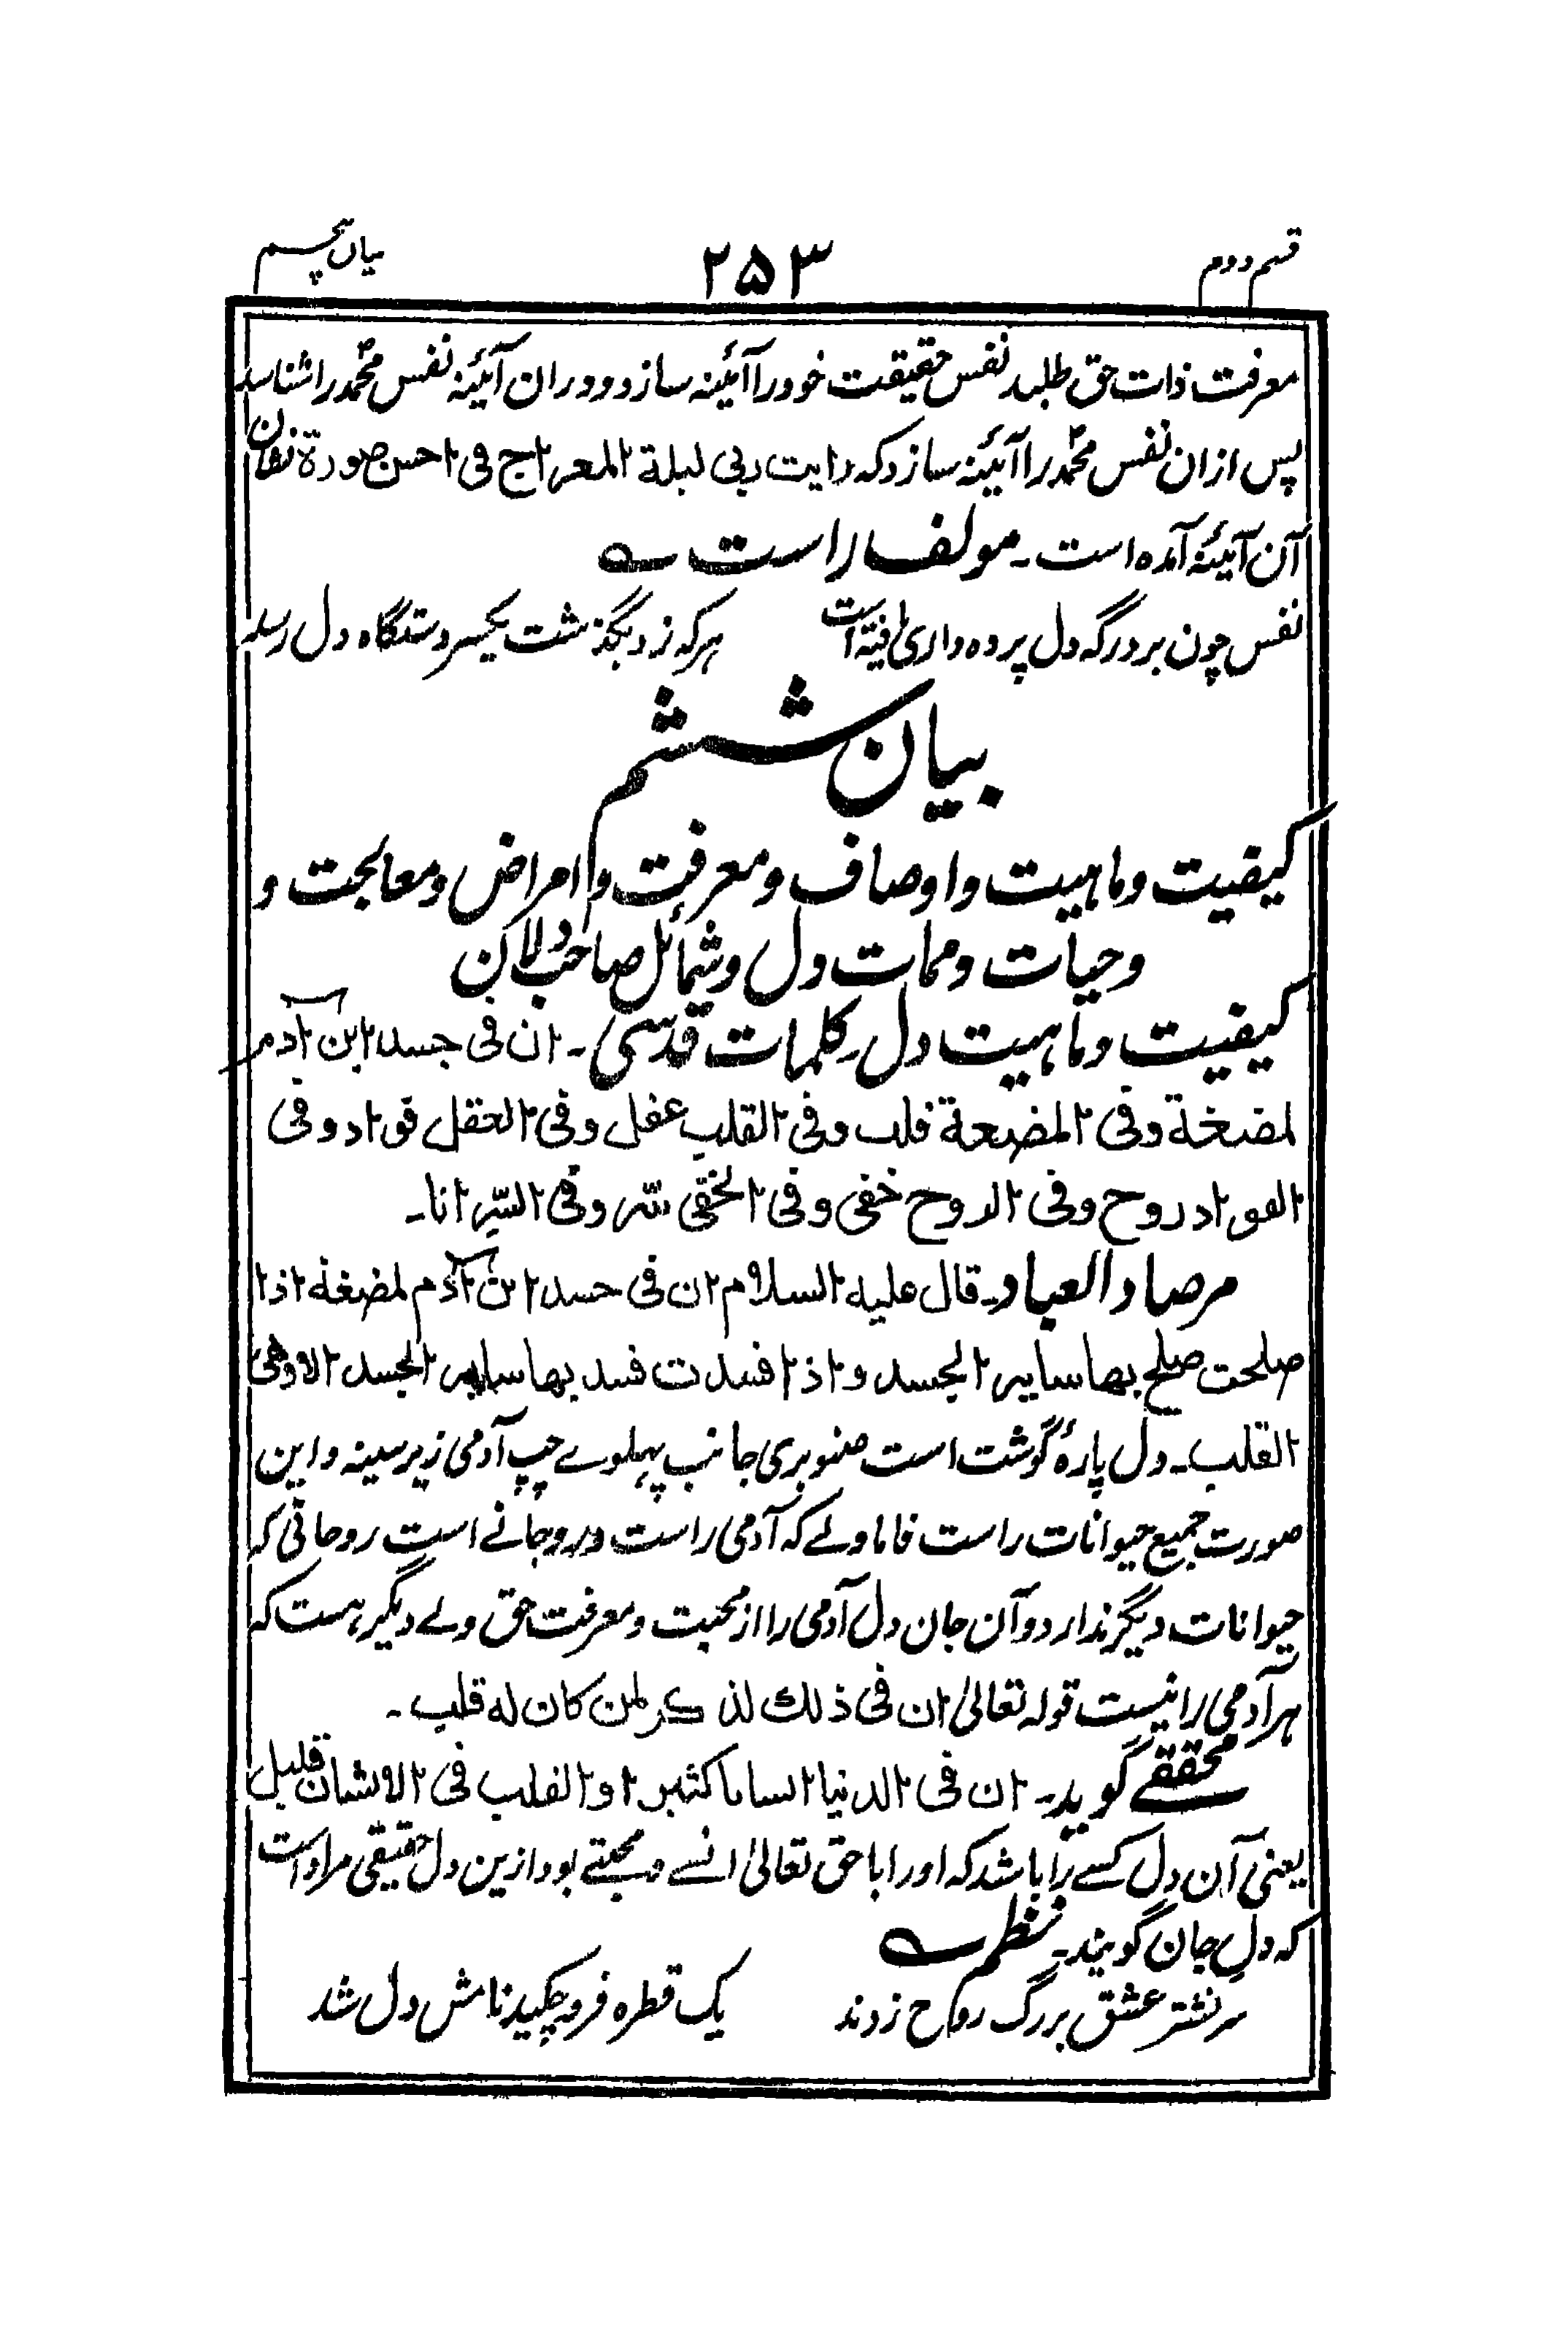 قسم دوم ۲۵۳ بیان پنجم
معرفت ذات حق طلبد نفس حقیقت خود را آئینه سازد و دران آئینه نفس محمدؐ را شناسد
پس ازان نفس محمدؐ را آئینه سازد که رایت ربی لیلة المعراج فی احسن صورة نشان
آن آئینه آمده است ۔ مولف راست ے
نفس چون بر درگه دل پرده داری یافته است هر که زد بگذشت یکسر دستگاه دل رسد
بیان ششم
کیفیت و ماهیت و اوصاف و معرفت و امراض و معالجت و
و حیات و ممات دل و شمائل صاحب دلان
کیفیت و ماهیت دل ۔ کلمات قدسی ۔ ان فی جسد ابن آدم
لمضغة و فی المضغة قلب و فی القلب عقل و فی العقل فواد و فی
الفواد روح و فی الروح خفی و فی الخفی سّر و فی السّر انا ۔
مرصاد العباد ۔ قال علیه السلام ان فی جسد ابن آدم لمضغة اذا
صلحت صلح بها سایر الجسد و اذا فسدت فسد بها سایر الجسد الا وهی
القلب ۔ دل پارۂ گوشت است صنوبری جانب پهلوے چپ آدمی زیر سینه و این
صورت جمیع حیوانات راست فاما ولے که آدمی راست و درو جانے است روحانی که
حیوانات دیگر ندارد و آن جان دل آدمی را از محبت و معرفت حق ولے دیگر هست که
هر آدمی را نیست قوله تعالیٰ ان فی ذلك لذکر لمن کان له قلب ۔
محققے گوید ۔ ان فی الدنیا انسانا کثیرا و القلب فی الانسان قلیل
یعنی آن دل کسے را باشد که او را با حق تعالیٰ انسے و محبتے بود ازین دل حقیقی مراد است
که دل جان گویند ۔ نظم ے
سر نشتر عشق بر رگ روح زدند یک قطره فرو چکید نامش دل شد